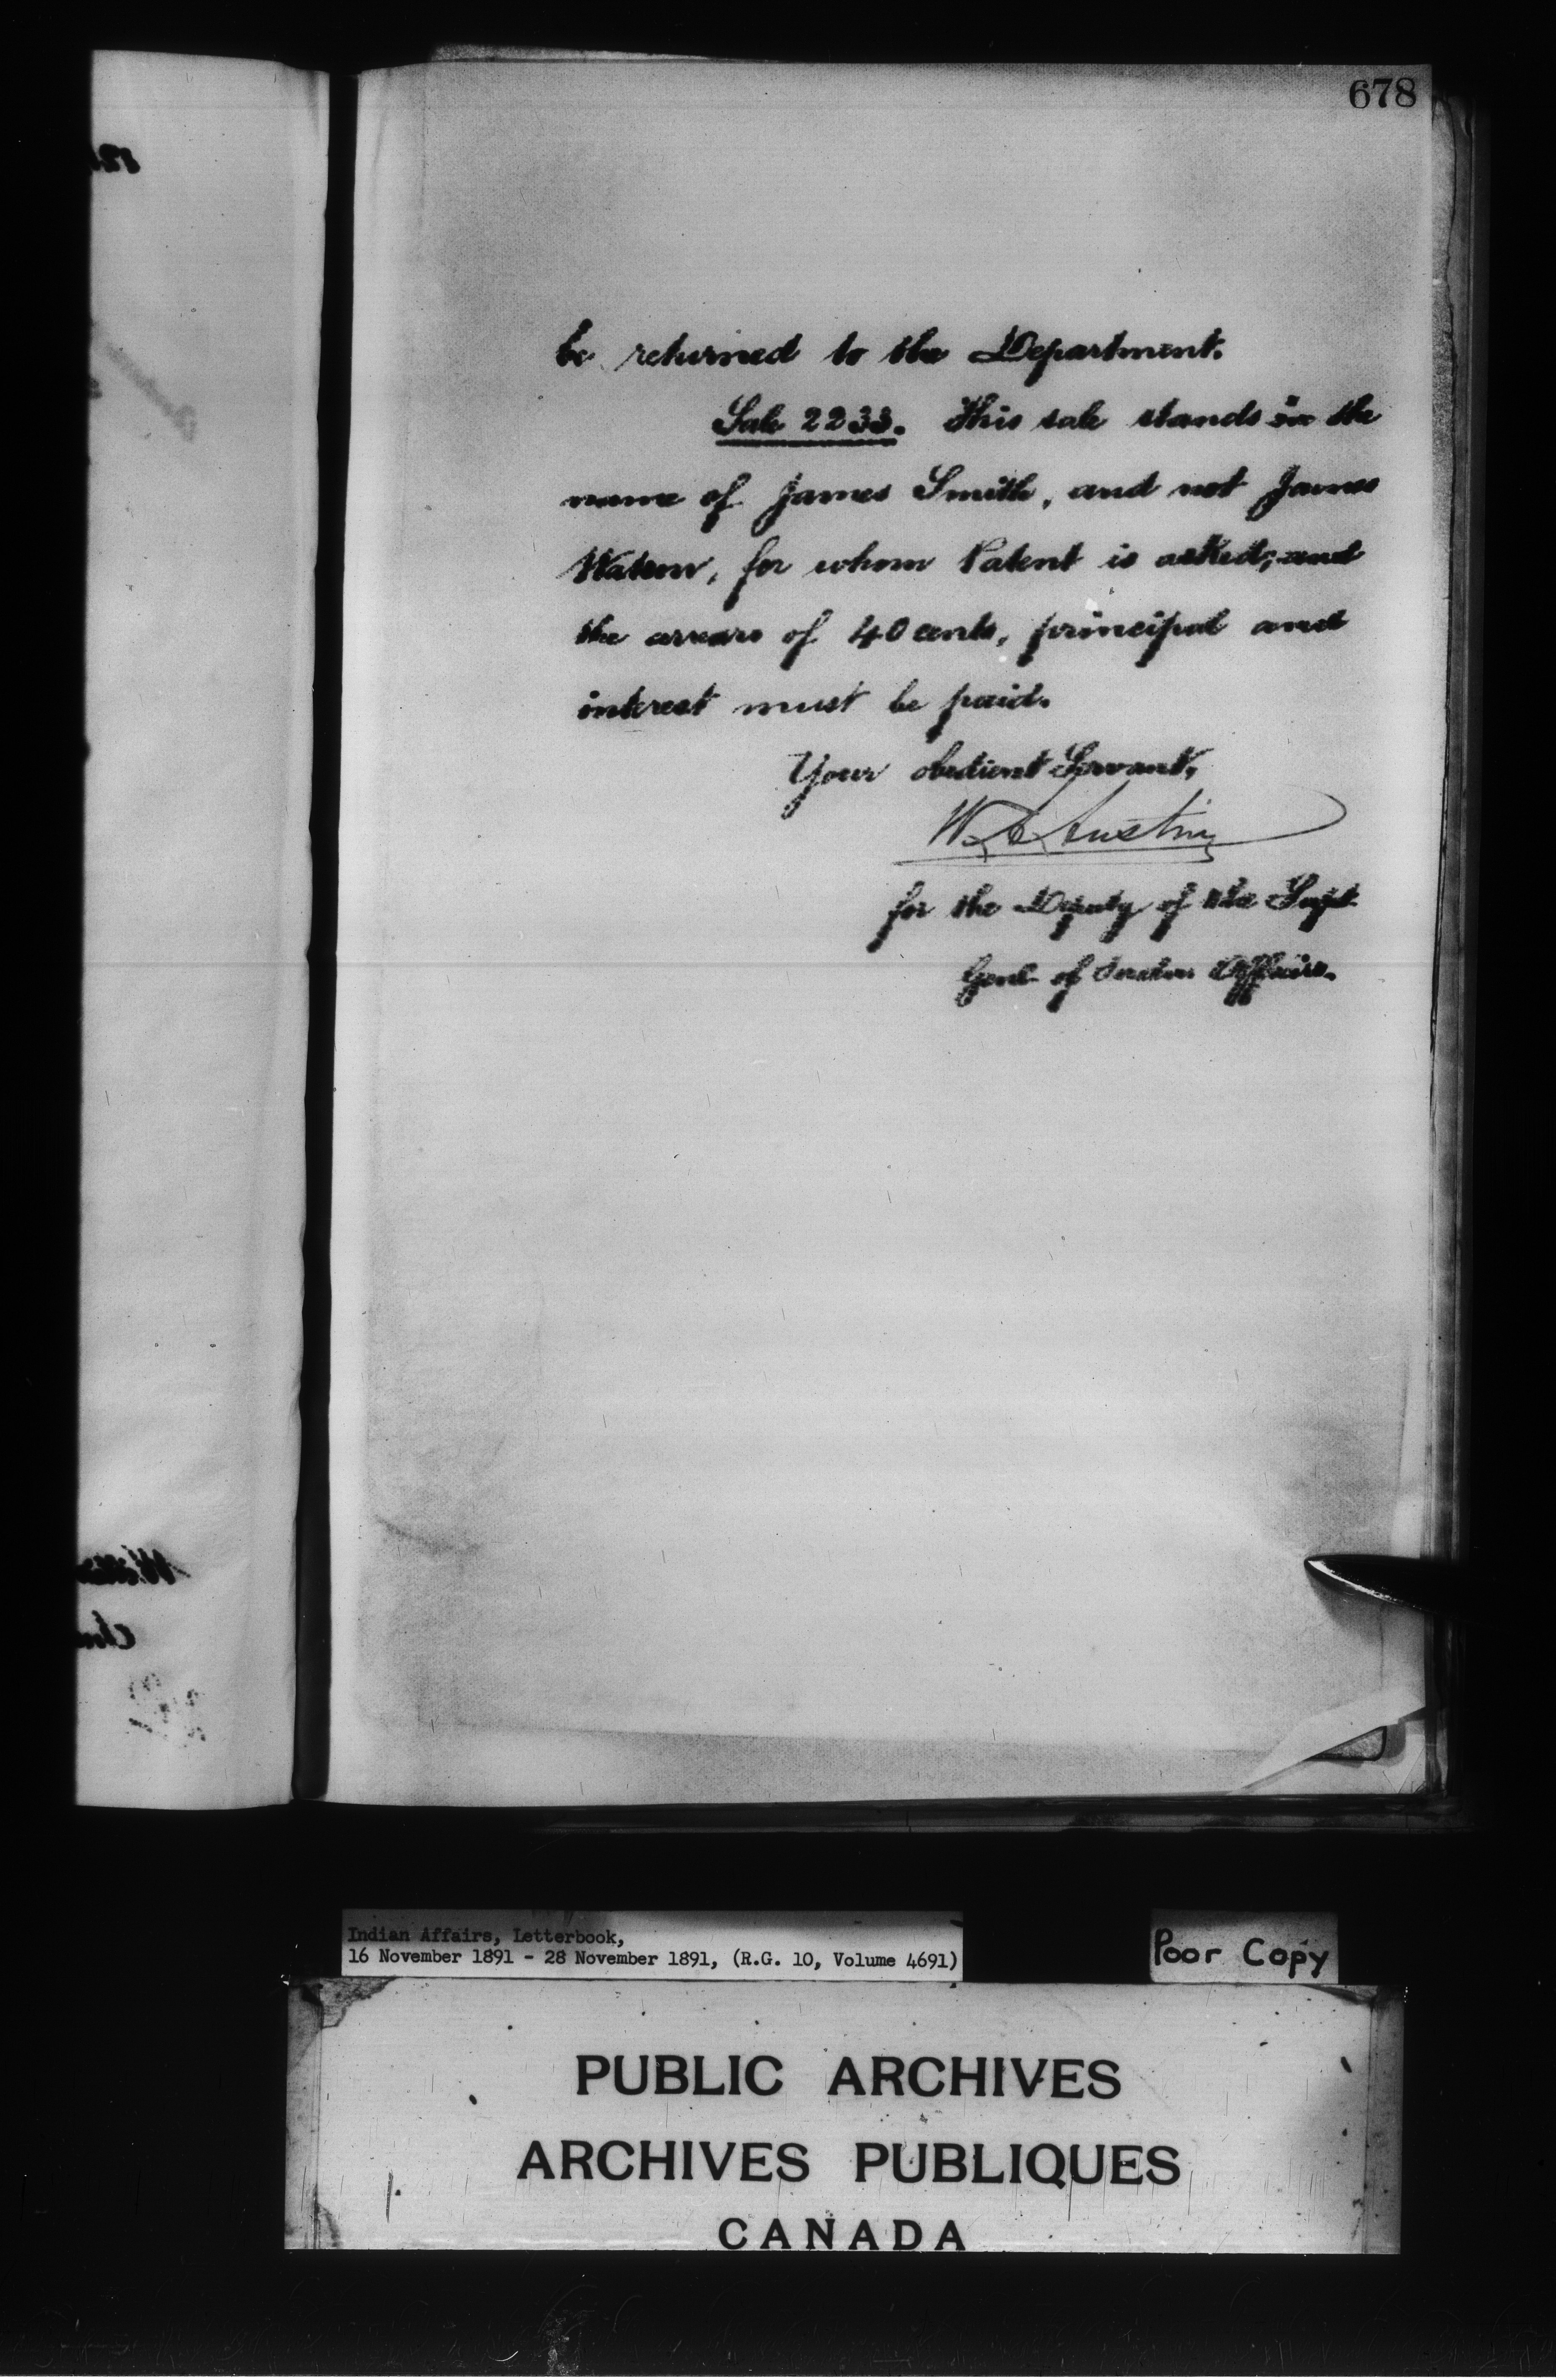 678
be returned to the Department.
Sale 2233. This sale stands in the
name of James Smith, and not James
Watson, for whom Patent is asked; and
the arrears of 40 cents, principal and
interest must be paid.
Your obedient Servant,
W. A. Austin
for the Deputy of the Supt
Genl of Indian Affairs.
Indian Affairs, Letterbook,
16 November 1891 - 28 November 1891, (R.G. 10, Volume 4691)
Poor Copy
PUBLIC ARCHIVES
ARCHIVES PUBLIQUES
CANADA